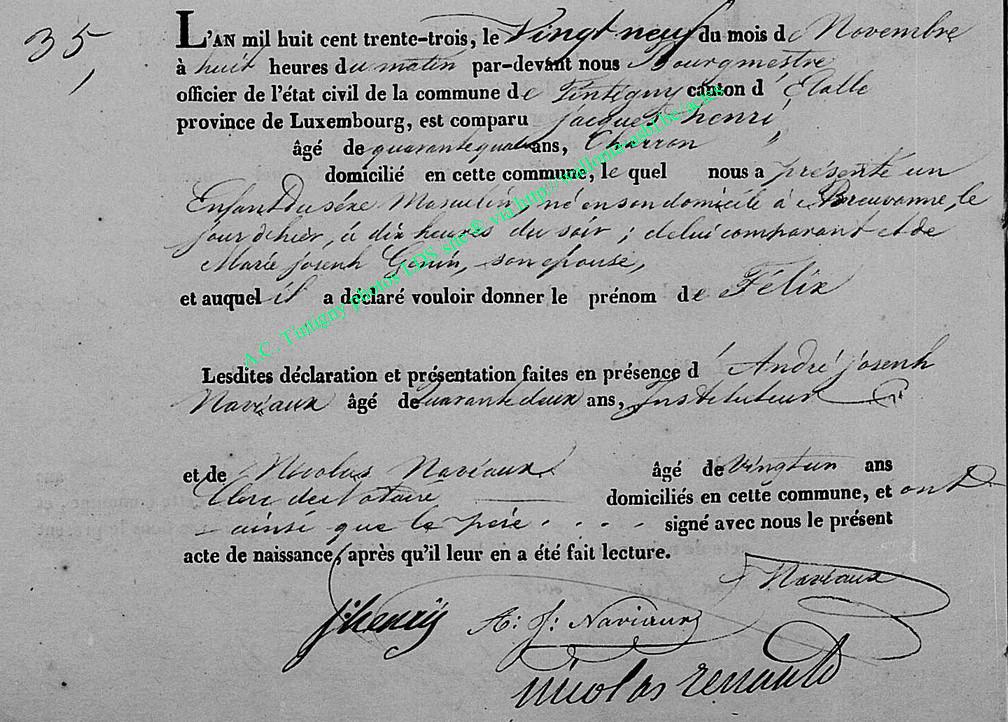 35,
L'AN mil huit cent trente-trois, le Vingt neuf du mois de Novembre
à huit heures du matin par-devant nous Bourgmestre
officier de l'état civil de la commune de Tintigny canton d'Etalle
province de Luxembourg, est comparu Jacques henri,
âgé de quarante quatre ans, Charron
domicilié en cette commune, le quel nous a présenté un
Enfant Du séxe Masculin, né en son domicile à Breuvanne, le
jour d'hier, à dix heures du soir ; de lui comparant et de
Marie joseph Génin, son épouse,
et auquel il a déclaré vouloir donner le prénom de Félix
Lesdites déclaration et présentation faites en présence d'André joseph
Naviaux âgé de quarante deux ans, Instituteur
et de Nicolas Naviaux âgé de vingt un ans
Clerc de Notaire domiciliés en cette commune, et ont
ainsi que le père . . . . signé avec nous le présent
acte de naissance, après qu'il leur en a été fait lecture.
Naviaux
J. henry A: J: Naviaux
nicolas renauld
A.C. Tintigny photos LDS sncd© via http://wallonia-asbl.be/actes